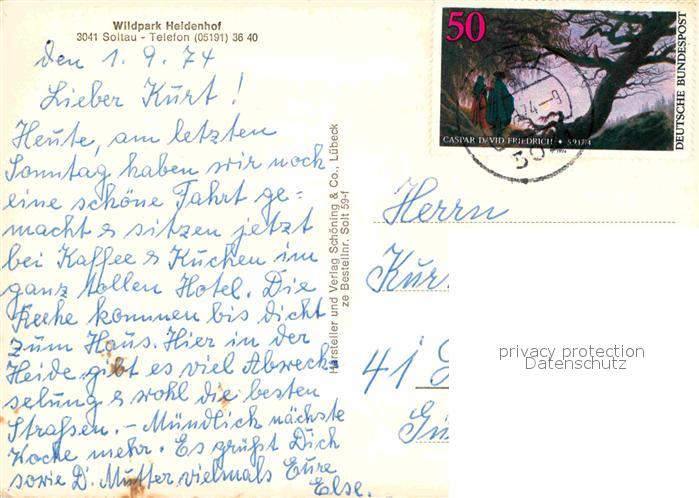 Wildpark Heidenhof
3041 Soltau - Telefon (05191) 36 40
den 1.9.74
Lieber Kurt!
Heute, am letzten
Sonntag haben wir noch
eine schöne Fahrt ge=
macht & sitzen jetzt
bei Kaffee & Kuchen im
ganz tollen Hotel. Die
Rehe kommen bis dicht
zum Haus. Hier in der
Heide gibt es viel Abwech-
selung & wohl die besten
Straßen. - Mündlich nächste
Woche mehr. Es grüßt Dich
sowie D. Mutter vielmals Eure
Else.
Hersteller und Verlag Schöning & Co., Lübeck
ze Bestellnr. Solt 59-f
50
CASPAR DAVID FRIEDRICH * 5.9.1774
DEUTSCHE BUNDESPOST
Herrn
Kur
41
privacy protection
Datenschutz